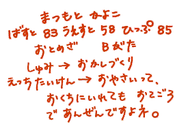 まつもと かよこ
ばすと 83 うえすと 58 ひっぷ 85
おとめざ Bがた
しゅみ → おかしづくり
えっちたいけん → おやさいって、
おくちにいれても おてごろ
であんぜんですよネ。